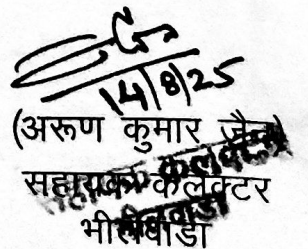 14/8/25
(अरूण कुमार जैन)
सहायक कलेक्टर
भीलवाडा